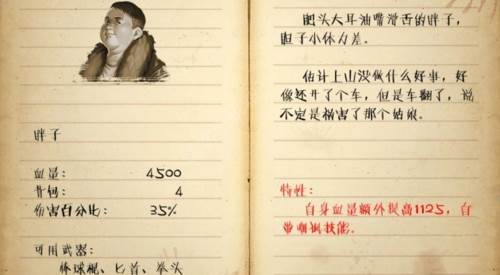 胖子
血量： 4500
背包： 4
伤害百分比： 35%
可用武器：
棒球棍、匕首、拳头
肥头大耳油嘴滑舌的胖子，
胆子小体力差。
估计上山没做什么好事，好
像还开了个车，但是车翻了，说
不定是祸害了那个姑娘。
特性：
自身血量额外提高1125，自
带嘲讽技能。